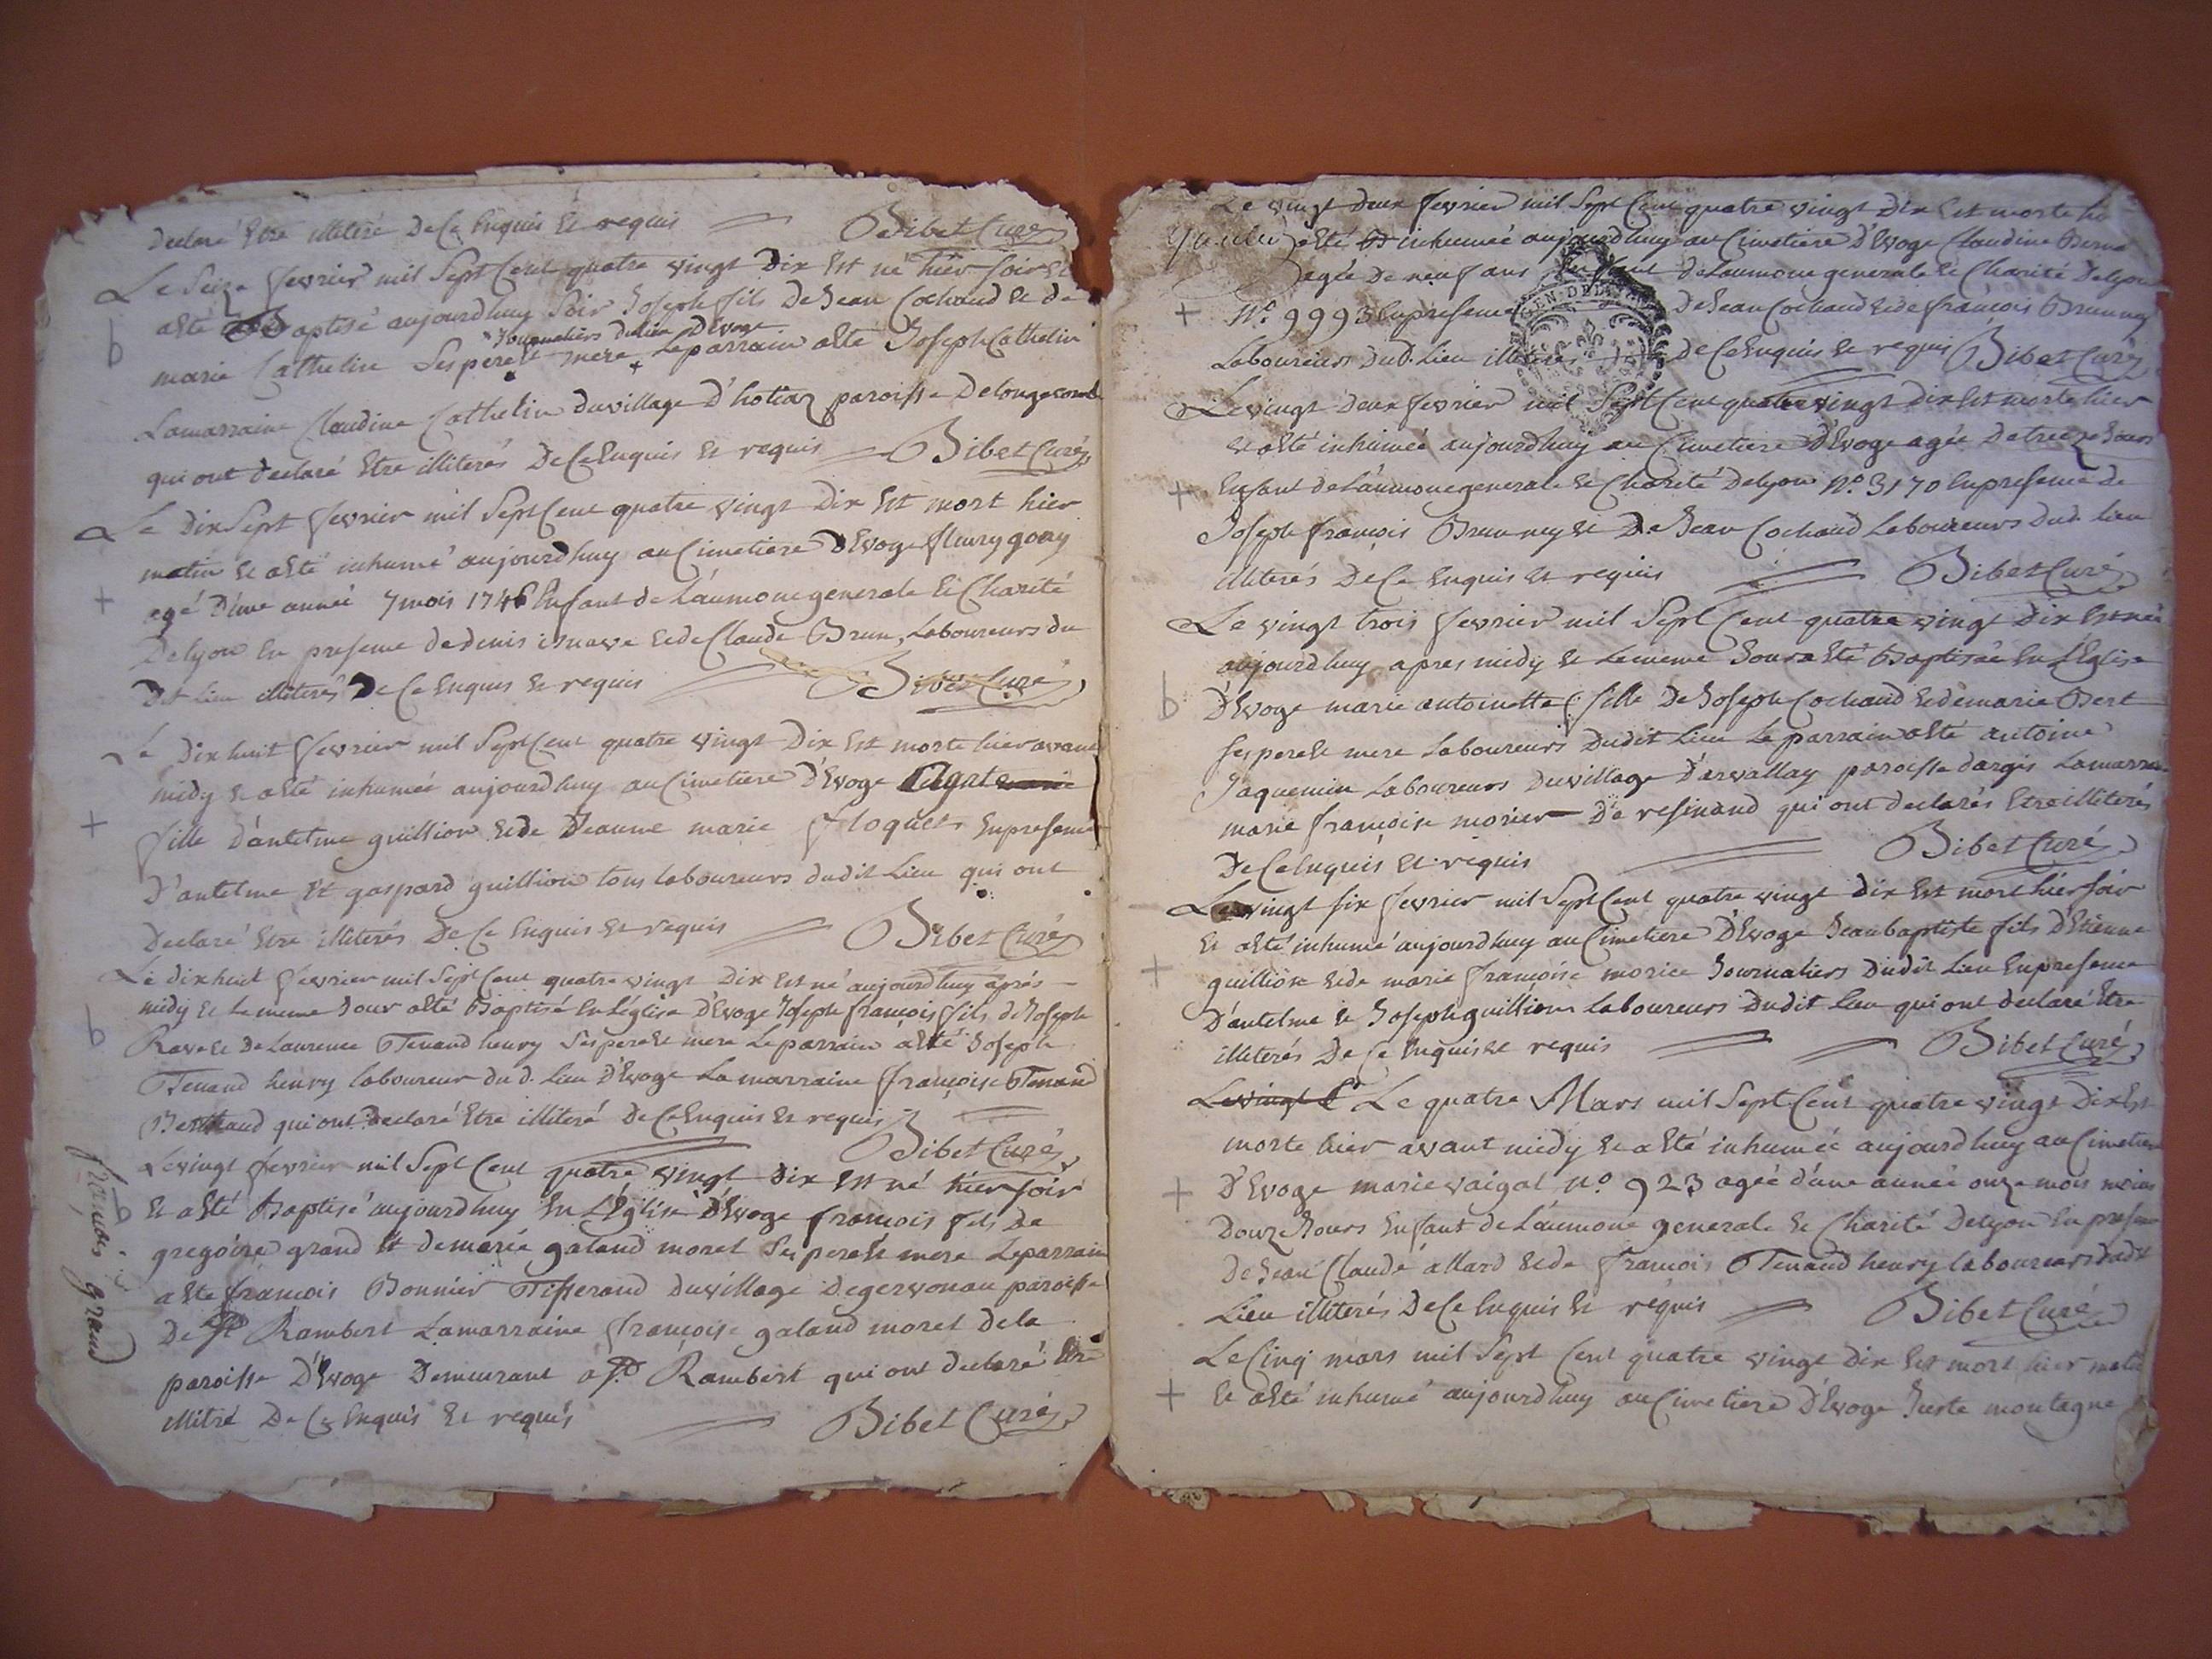 declaré Etre illiteré De Ce Enquis et requis Bibet Curé
Le Seize fevrier mil Sept Cent quatre vingt Dix Est né hier soir et
aété Baptisé aujourdhuy Soir Joseph fils De Jean Cochaud et de
Journaliers du lieu d'Evoge
marie Cathelin Ses pere et mere Le parrain aété Joseph Cathelin
La marraine Claudine Cathelin du village d'hotiaz paroisse De longecomb
qui ont declaré Etre illiterés De Ce Enquis et requis Bibet Curé
Le Dix Sept fevrier mil Sept Cent quatre vingt Dix Est mort hier
matin et aété inhumé aujourdhuy au Cimetiere D'Evoge fleury gony
agé D'une année 7 mois 1746 Enfant de L'aumone generale et Charité
De lyon En presence de denis et de Claude Brun, Laboureurs du
Dit Lieu illiterés De Ce Enquis et requis Bibet Curé
Le Dix huit fevrier mil Sept Cent quatre vingt Dix Est morte hier avant
midy et aété inhumée aujourdhuy au Cimetiere D'Evoge
fille d'antelme guillion et de Jeanne marie floquet En presence
D'antelme Et gaspard guillion tous laboureurs dudit Lieu qui ont
Declaré Etre illiterés De Ce Enquis et requis Bibet Curé
Le dix huit fevrier mil Sept Cent quatre vingt Dix Est né aujourdhuy aprés
midy et Le meme Jour aété Baptisé En L'église D'Evoge Joseph françois fils de Joseph
Rave et De Laurence Tenand henry Ses pere et mere Le parrain aété Joseph
Tenand henry laboureur du d. Lieu D'Evoge La marraine françoise Tenand
qui ont declaré Etre illiteré De Ce Enquis et requis
Bibet Curé
Le vingt fevrier mil Sept Cent quatre vingt Dix Est né hier soir
et aété Baptisé aujourdhuy En L'Eglise D'Evoge françois fils De
gregoire grand Et de marie galand moret Ses pere et mere Le parrain
aété françois Bonnier Tisserand du village De gervonau paroisse
De St Rambert La marraine françoise galand moret de la
paroisse D'Evoge Demeurant a St Rambert qui ont declaré Etre
illitré De Ce Enquis et requis Bibet Curé
françois grand
Le vingt Deux fevrier mil Sept Cent quatre vingt Dix Est morte
aété inhumée aujourdhuy au Cimetiere D'Evoge Claudine
agée De neuf ans Enfant De L'aumone generale et Charité De lyon
N.° 9993 En presence De Jean Cochaud et de françois Brunney
Laboureurs dud. Lieu illiterés De Ce Enquis et requis Bibet Curé
Le vingt Deux fevrier mil Sept Cent quatre vingt dix Est morte hier
et aété inhumée aujourdhuy au Cimetiere D'Evoge agée De treize Jours
Enfant de L'aumone generale et Charité De lyon N.° 3170 En presence de
Joseph françois Brunney et De Jean Cochaud Laboureurs dud. lieu
illiterés De Ce Enquis et requis Bibet Curé
Le vingt trois fevrier mil Sept Cent quatre vingt Dix Est née
aujourdhuy apres midy et Le meme Jour aété Baptisée En L'Eglise
D'Evoge marie antoinette fille De Joseph Cochaud et de marie Bert
Ses pere et mere Laboureurs Dudit Lieu Le parrain aété antoine
Jaquemin Laboureurs Du village D'arvallay paroisse dargis La marraine
marie françoise morier De resinand qui ont declarés Etre illiterés
De Ce Enquis et requis Bibet Curé
Le vingt six fevrier mil Sept Cent quatre vingt dix Est mort hier soir
Et aété inhumé aujourdhuy au Cimetiere D'Evoge Jean baptiste fils D'Etienne
guillion et de marie françoise morier Journaliers Dudit Lieu En presence
D'antelme et Joseph guillion Laboureurs Dudit Lieu qui ont declaré Etre
illiterés De Ce Enquis et requis Bibet Curé
Le vingt Le quatre Mars mil Sept Cent quatre vingt Dix Est
morte hier avant midy et aété inhumée aujourdhuy au Cimetiere
D'Evoge marie vaigat N.° 923 agée d'une année onze mois moins
Douze Jours Enfant de L'aumone generale et Charité De lyon En presence
De Jean Claude allard et de françois Tenand henry laboureurs dudit
Lieu illiterés De Ce Enquis et requis Bibet Curé
Le Cinq mars mil Sept Cent quatre vingt Dix Est mort hier matin
Et aété inhumé aujourdhuy au Cimetiere D'Evoge Juste montagne